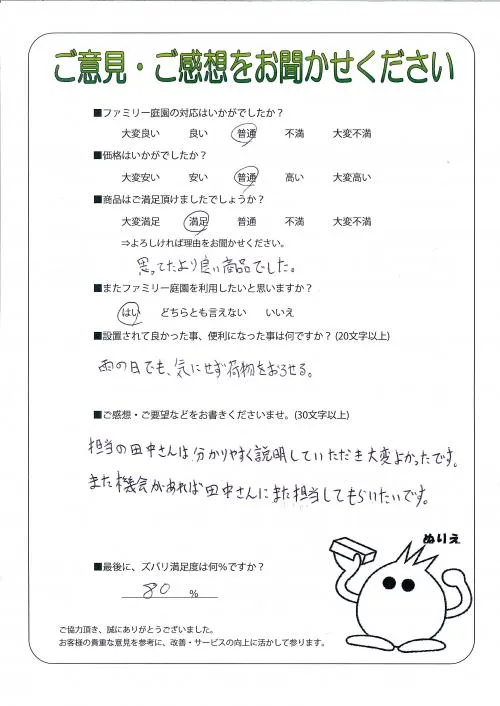 ご意見・ご感想をお聞かせください
■ファミリー庭園の対応はいかがでしたか？
大変良い 良い 普通 不満 大変不満
■価格はいかがでしたか？
大変安い 安い 普通 高い 大変高い
■商品はご満足頂けましたでしょうか？
大変満足 満足 普通 不満 大変不満
⇒よろしければ理由をお聞かせください。
思ってたより良い商品でした。
■またファミリー庭園を利用したいと思いますか？
はい どちらとも言えない いいえ
■設置されて良かった事、便利になった事は何ですか？(20文字以上)
雨の日でも、気にせず荷物をおろせる。
■ご感想・ご要望などをお書きくださいませ。(30文字以上)
担当の田中さんは分かりやすく説明していただき大変よかったです。
また機会があれば田中さんにまた担当してもらいたいです。
ぬりえ
■最後に、ズバリ満足度は何%ですか？
80 %
ご協力頂き、誠にありがとうございました。
お客様の貴重な意見を参考に、改善・サービスの向上に活かして参ります。